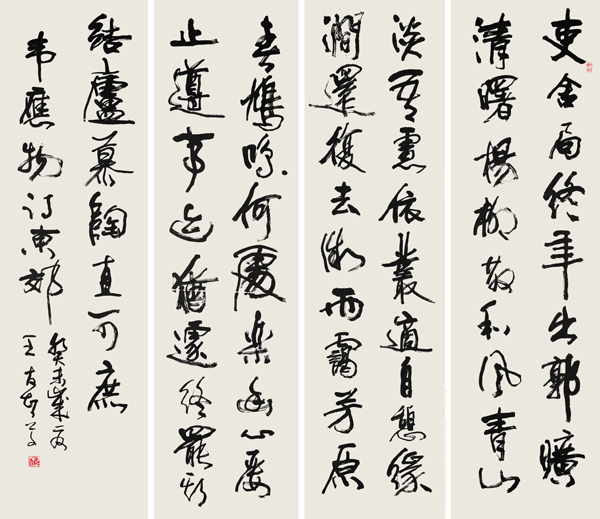 吏舍局終年出郭曠
清曙楊柳散和風青山
淡吾慮依叢適自憩緣
澗還復去微雨靄芳原
春鳩鳴何處樂幽心屢
止遵事迹猶遽終罷斯
結廬慕陶直可庶
韦應物詩東郊
癸未歲
王